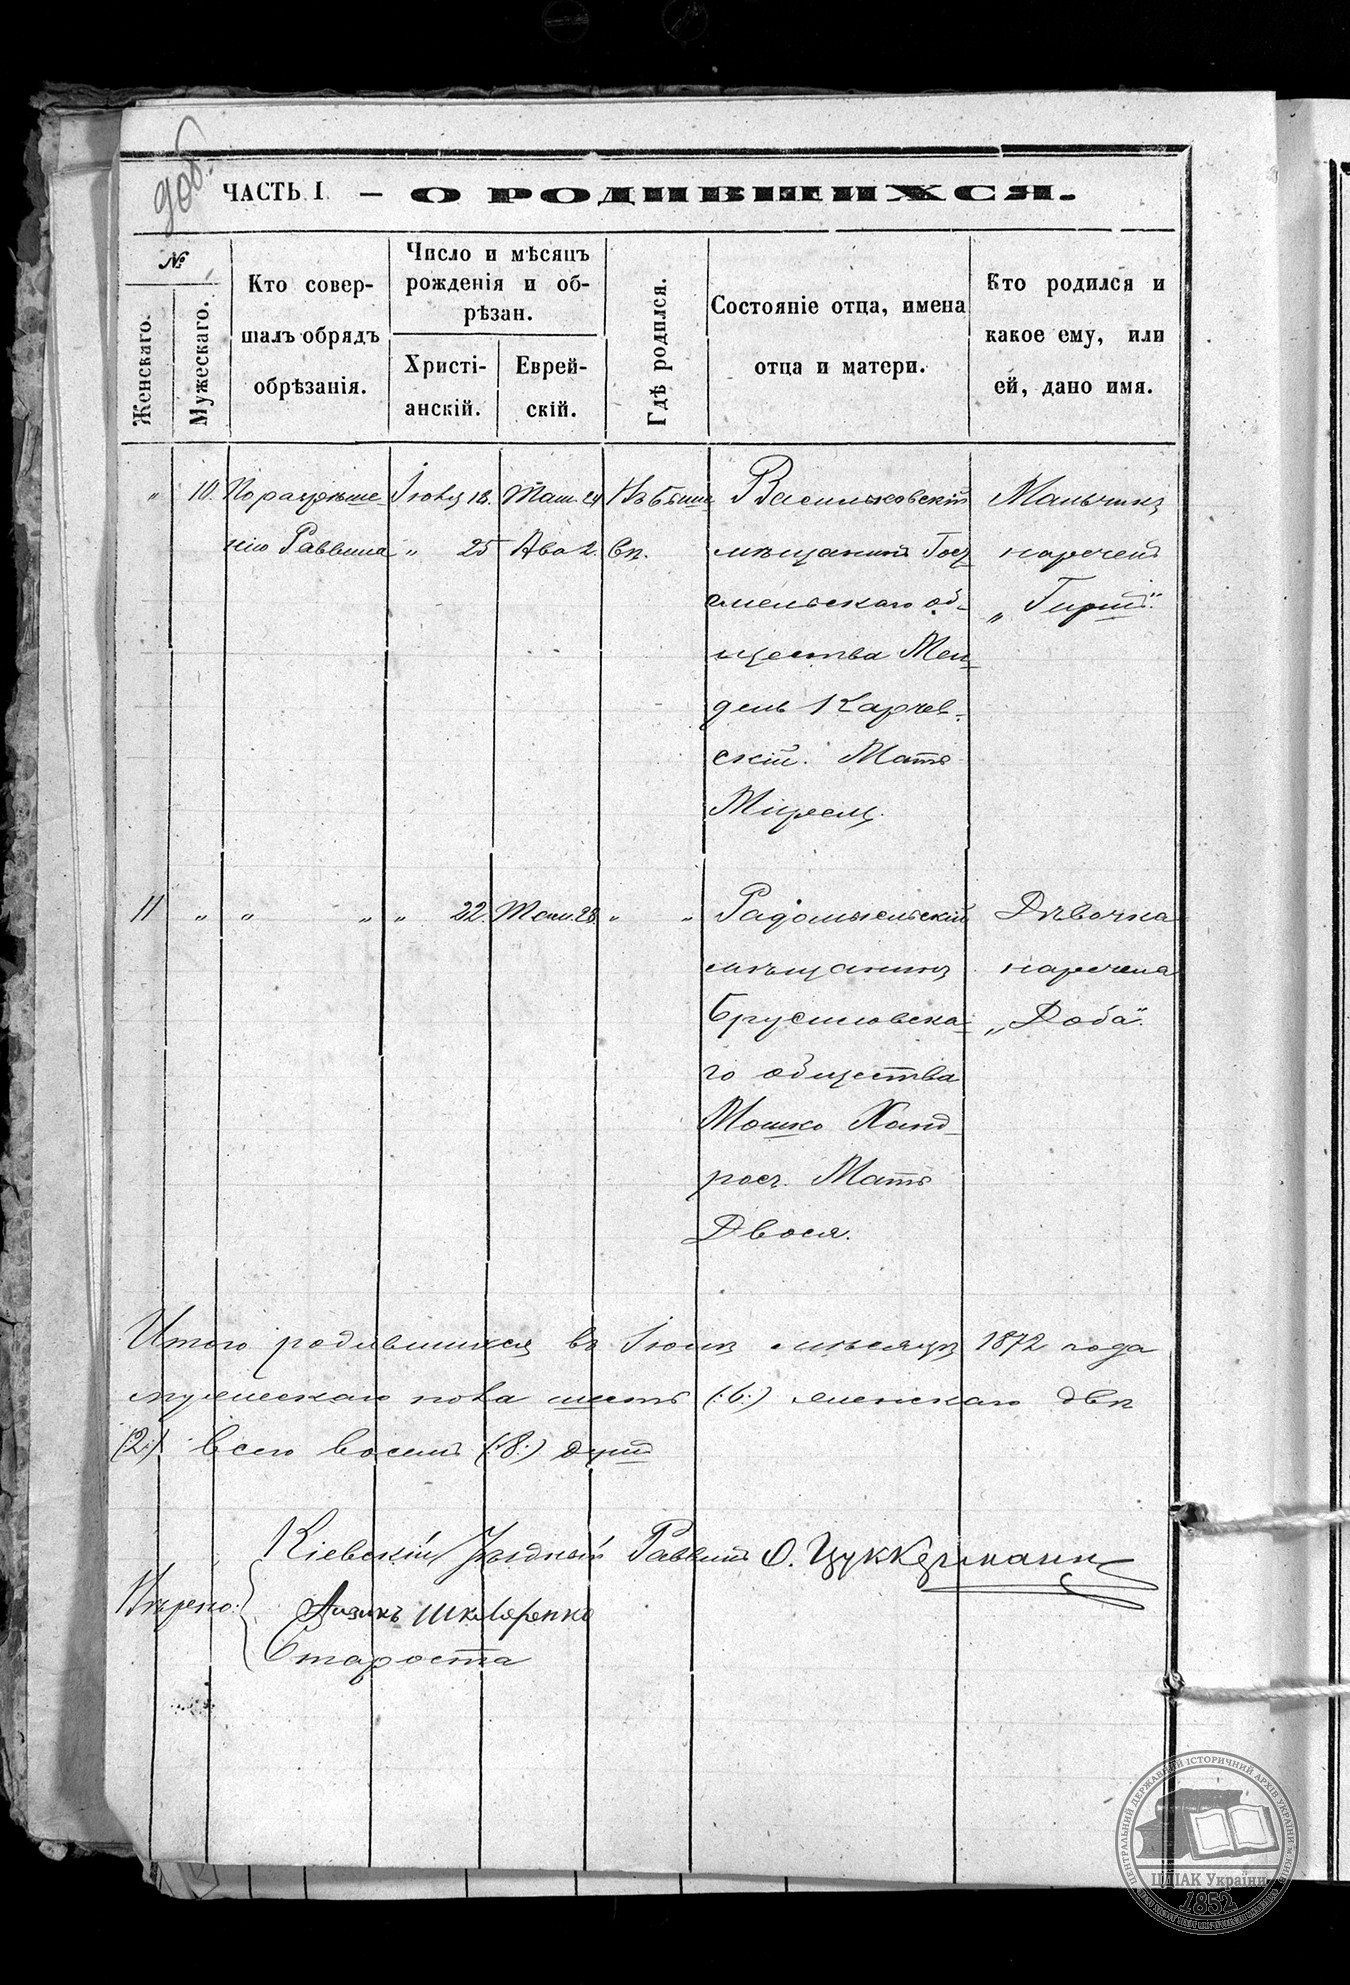 90б.
ЧАСТЬ I. — О РОДИВШИХСЯ.
№
Женскаго.
Мужескаго.
Кто совер-
шалъ обрядъ
обрѣзанія.
Число и мѣсяцъ
рожденія и об-
рѣзан.
Христі-
анскій.
Еврей-
скій.
Гдѣ родился.
Состояніе отца, имена
отца и матери.
Кто родился и
какое ему, или
ей, дано имя.
" 10. По разрѣше-
нію Раввина
Іюля 18.
" 25
Там. 24
Ава 2.
Васильковскій
мѣщанинъ
общества Мен-
дель Карчев-
скій. Мать
Миреля.
Мальчикъ
нареченъ
„Гиршъ".
11 " " " " 22. Там. 28. " "
Радомысльскій
мѣщанинъ
Брусиловска-
го общества
МошкоХанд-
росъ. Мать
Двося.
Дѣвочка
наречена
„Доба".
Итого родившихся въ Іюлѣ мѣсяцѣ 1872 года
мужескаго пола шесть (:6:) женскаго двѣ
(:2:) всего восемь (:8:) душъ
Кіевскій Уѣздный Раввинъ О. Цуккерманъ
Вѣрно:
Айзикъ Шкляренко
Староста
ЦЕНТРАЛЬНИЙ ДЕРЖАВНИЙ ІСТОРИЧНИЙ АРХІВ УКРАЇНИ М. КИЇВ
ЦДІАК України
1852